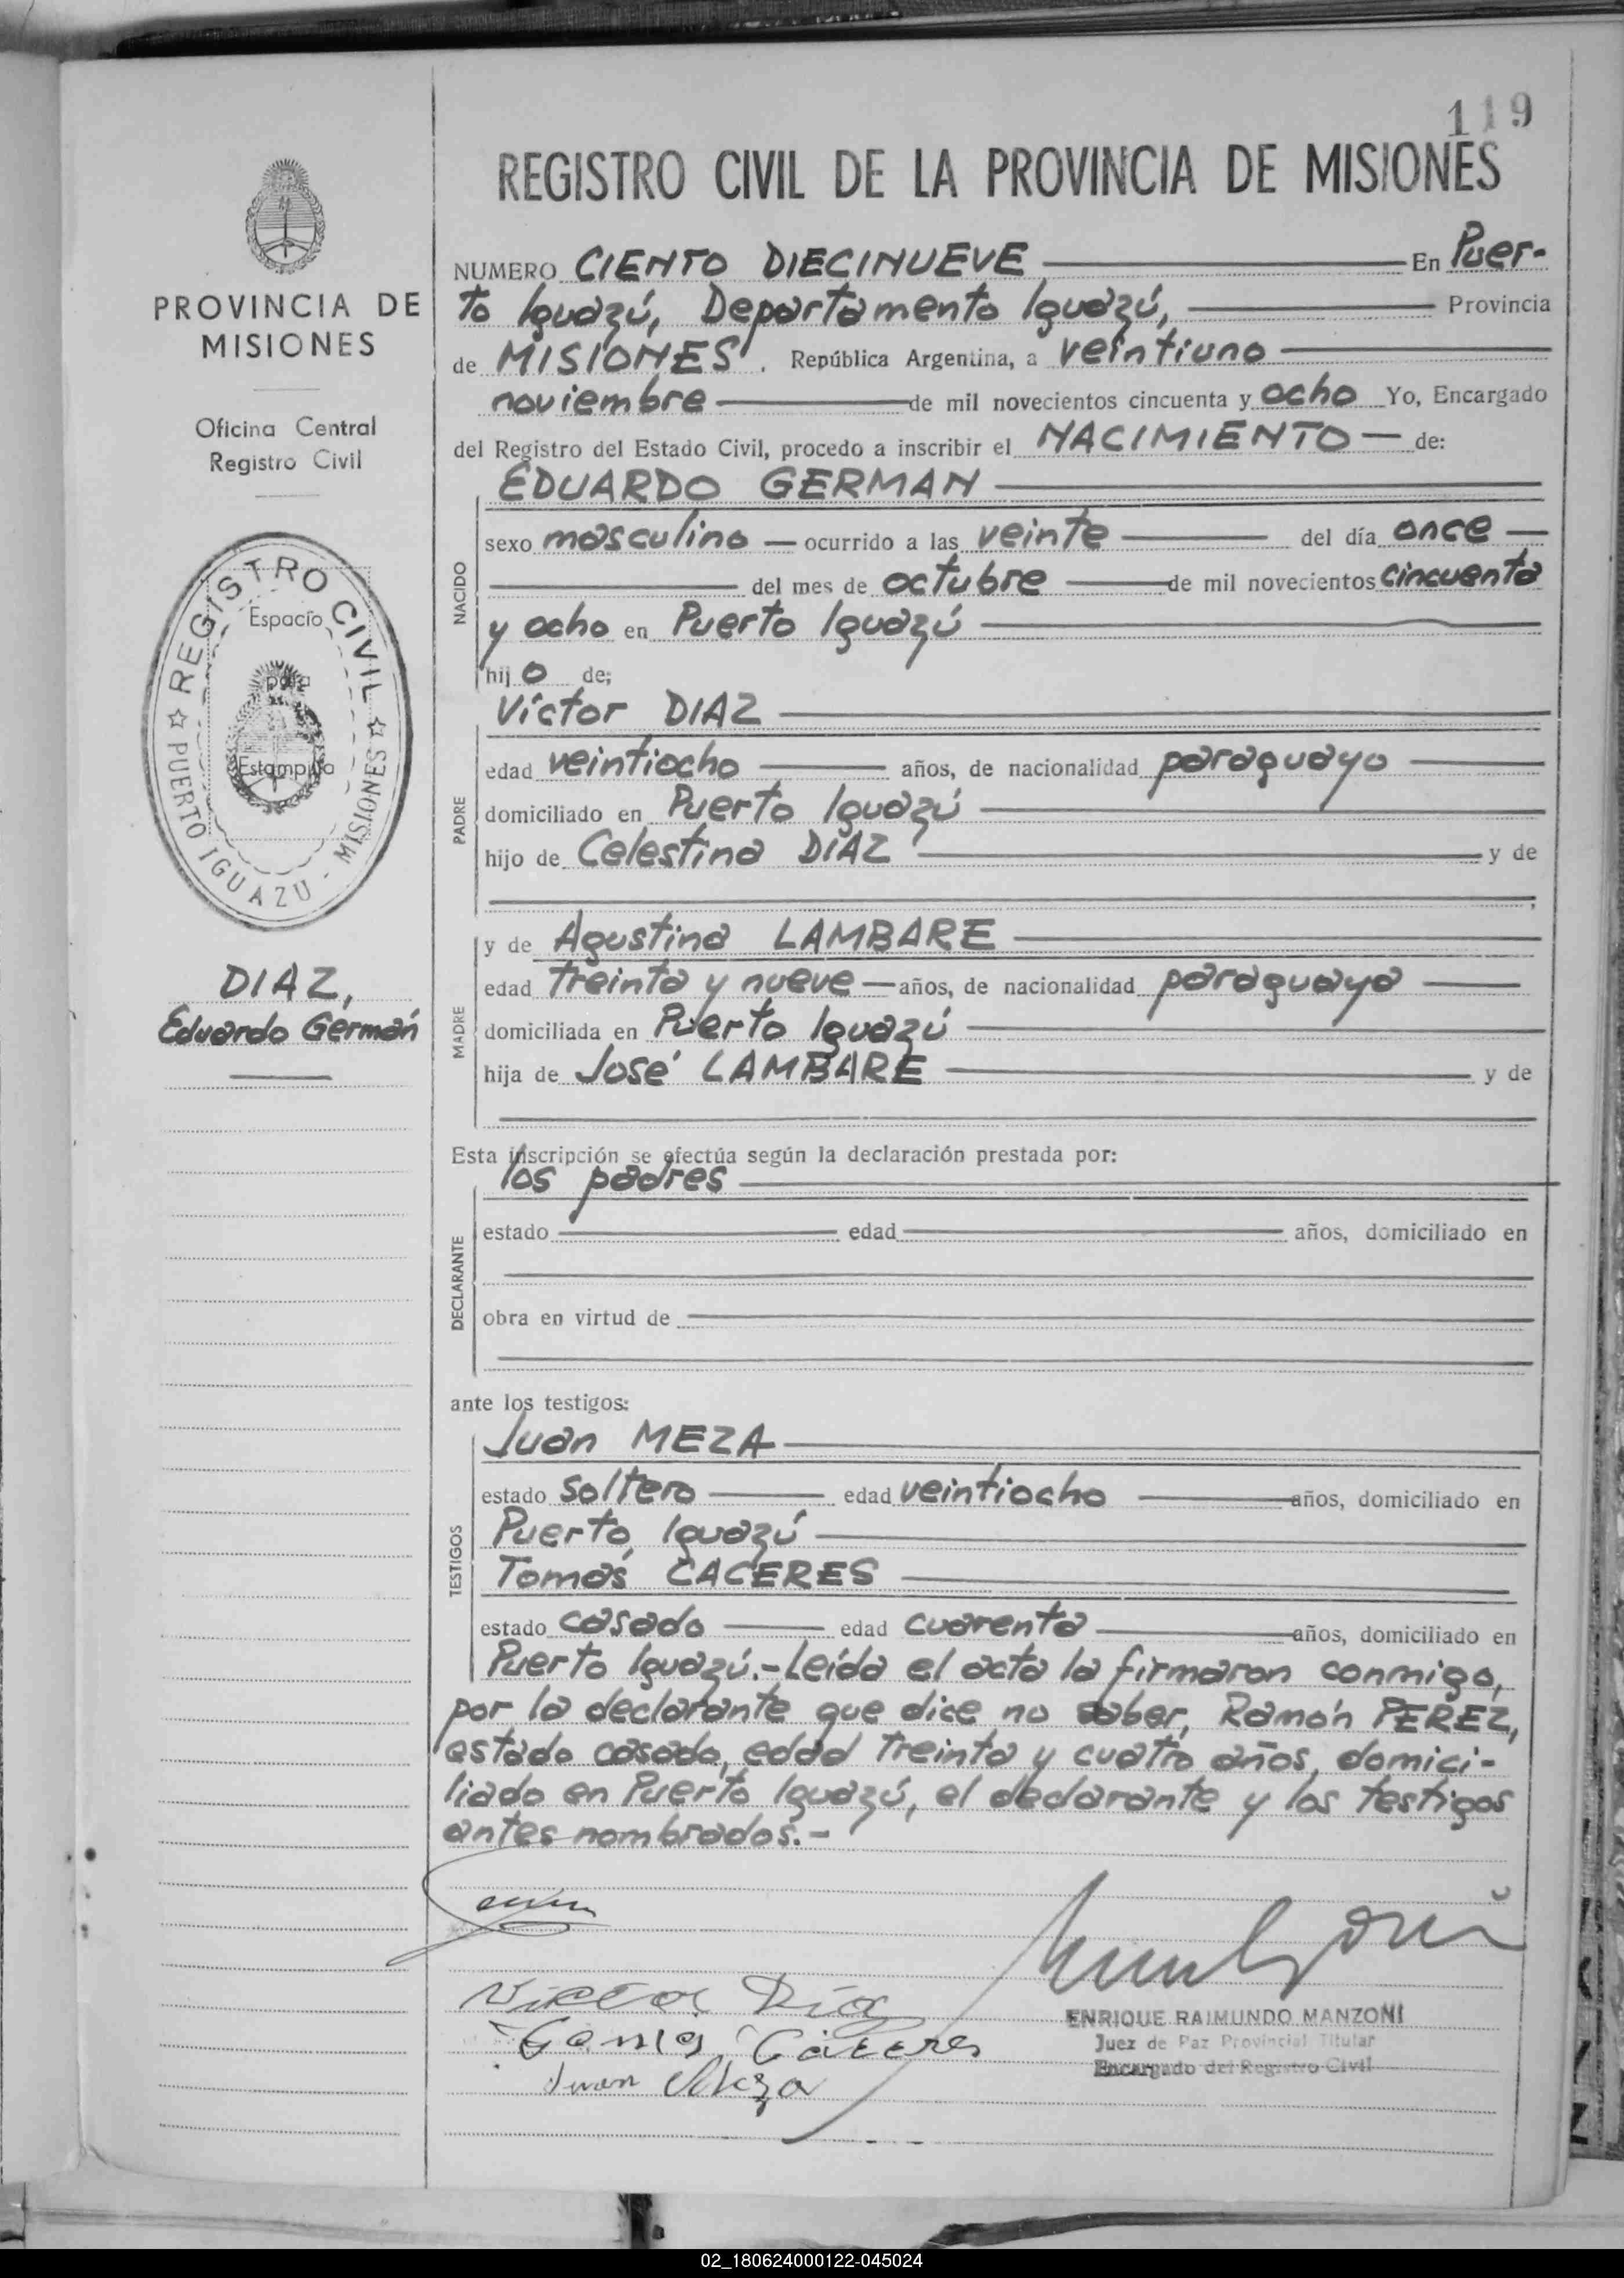 119
REGISTRO CIVIL DE LA PROVINCIA DE MISIONES
PROVINCIA DE
MISIONES
Oficina Central
Registro Civil
REGISTRO CIVIL
PUERTO IGUAZU - MISIONES
Espacio
para
Estampilla
DIAZ,
Eduardo Germán
NUMERO CIENTO DIECINUEVE En Puer-
to Iguazú, Departamento Iguazú, Provincia
de MISIONES. República Argentina, a veintiuno
noviembre de mil novecientos cincuenta y ocho Yo, Encargado
del Registro del Estado Civil, procedo a inscribir el NACIMIENTO de:
NACIDO
EDUARDO GERMAN
sexo masculino ocurrido a las veinte del día once
del mes de octubre de mil novecientos cincuenta
y ocho en Puerto Iguazú
hijo de;
PADRE
Víctor DIAZ
edad veintiocho años, de nacionalidad paraguayo
domiciliado en Puerto Iguazú
hijo de Celestina DIAZ y de
MADRE
y de Agustina LAMBARE
edad treinta y nueve años, de nacionalidad paraguaya
domiciliada en Puerto Iguazú
hija de José LAMBARE y de
Esta inscripción se efectúa según la declaración prestada por:
DECLARANTE
los padres
estado edad años, domiciliado en
obra en virtud de
ante los testigos:
TESTIGOS
Juan MEZA
estado soltero edad veintiocho años, domiciliado en
Puerto Iguazú
Tomás CACERES
estado casado edad cuarenta años, domiciliado en
Puerto Iguazú.- Leída el acta la firmaron conmigo,
por la declarante que dice no saber, Ramón PEREZ,
estado casado, edad treinta y cuatro años, domici-
liado en Puerto Iguazú, el declarante y los testigos
antes nombrados.-
Victor Díaz
Caceres
Juan Meza
ENRIQUE RAIMUNDO MANZONI
Juez de Paz Provincial Titular
Encargado del Registro Civil
02_180624000122-045024